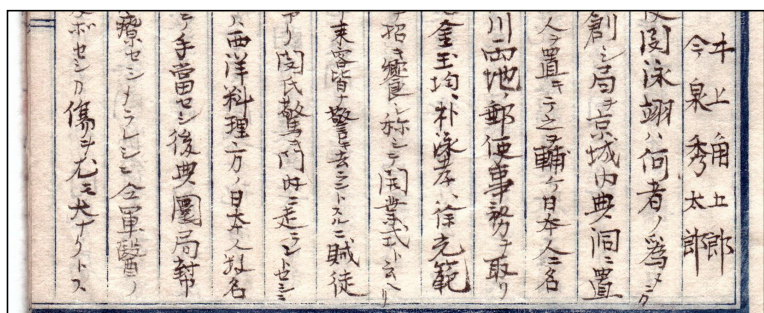 井上角五郎
今泉秀太郎
閔泳翊ハ何者ノ為メニカ
創シ局ヲ京城内典洞ニ置
人ヲ置キテ之ヲ輔ケ日本人二名
川両地ノ郵便事務ヲ取リ
金玉均、朴泳孝、徐光範
招キ饗シ称シテ開業式ト云ヘリ
来客皆ナ驚キ去ラントスルニ賊徒
アリ閔氏驚キ門内ニ走ラントセシニ
西洋料理方ノ日本人数名
テ手當セシ後典圜局幇
療セシメラレシニ仝軍醫ノ
ボセシカ傷ヲ尤モ大ナリトス